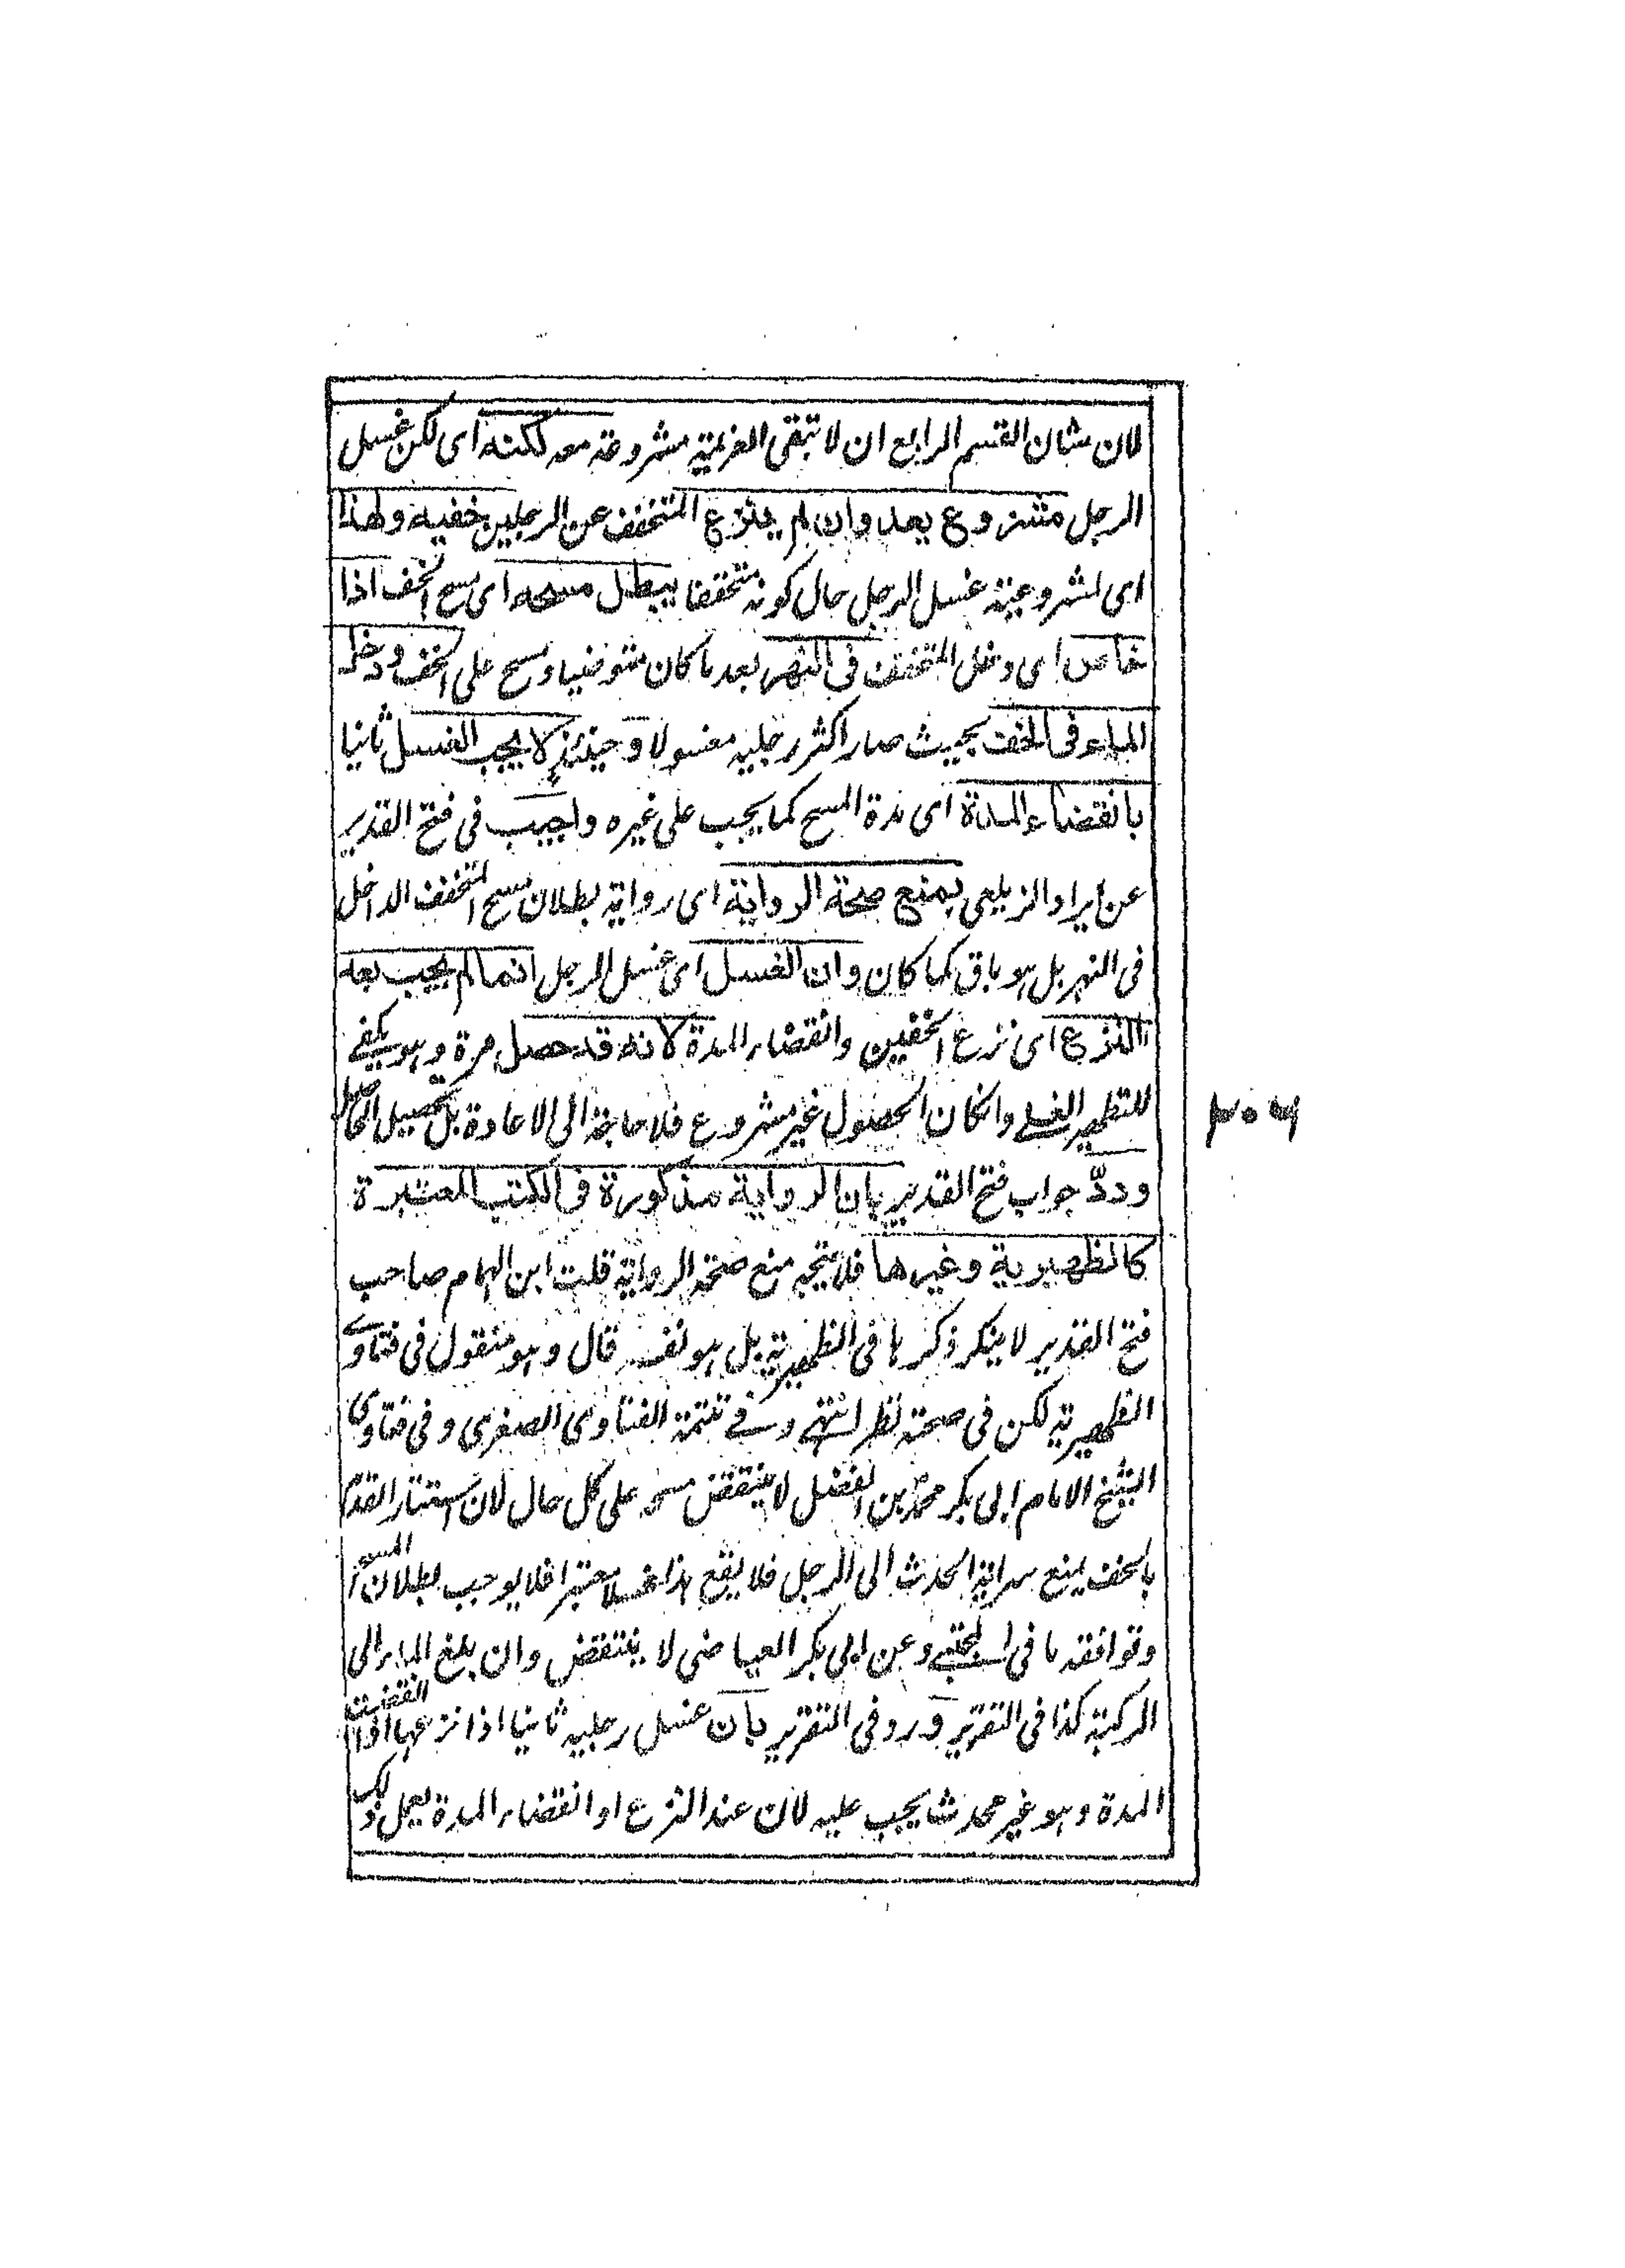 لان شان القسم الرابع ان لا تبقى العزيمة مشروعة معه لكنه اى لكن غسل
الرجل مشروع بعد وان لم ينزع المتخفف عن الرجلين خفيه ولهذا
اى لمشروعية غسل الرجل حال كونه متخففا يبطل مسحه اى مسح الخف اذا
خاض اى دخل المتخفف فى النهر بعد ما كان متوضيا ومسح على الخف ودخل
الماء فى الخف بحيث صار اكثر رجليه مغسولا وحينئذ لا يجب الغسل ثانيا
بانقضاء المدة اى مدة المسح كما يجب على غيره واجيب فى فتح القدير
عن ايراد الزيلعى بمنع صحة الرواية اى رواية بطلان مسح المتخفف الداخل
فى النهر بل هو باق كما كان وان الغسل اى غسل الرجل انما لم يجب بعد
النزع اى نزع الخفين وانقضاء المدة لانه قد حصل مرة وهو يكفى
للتطهير الغسلى وانكان الحصول غير مشروع فلا حاجة الى الاعادة بل تحصيل الحاصل
وردّ جواب فتح القدير بان الرواية مذكورة فى الكتب المعتبرة
كالظهيرية وغيرها فلا يتجه منع صحة الرواية قلت ابن الهمام صاحب
فتح القدير لا ينكر ذكرها فى الظهيرية بل هو نفسه قال وهو منقول فى فتاوى
الظهيرية لكن فى صحته نظر انتهى وفى تتمة الفتاوى الصغرى وفى فتاوى
الشيخ الامام ابى بكر محمد بن الفضل لا ينتقض مسحه على كل حال لان استتار القدم
بالخف يمنع سراية الحدث الى الرجل فلا يقع هذا غسلا معتبرا فلا يوجب بطلان المسح
وتوافقه ما فى المجتبى وعن ابى بكر العياضى لا ينتقض وان بلغ الماء الى
الركبة كذا فى التقرير ورد فى التقرير بان غسل رجليه ثانيا اذا نزعها اذا انقضت
المدة وهو غير محدث يجب عليه لان عند النزع او انقضاء المدة يعمل ذلك
٢٠٦